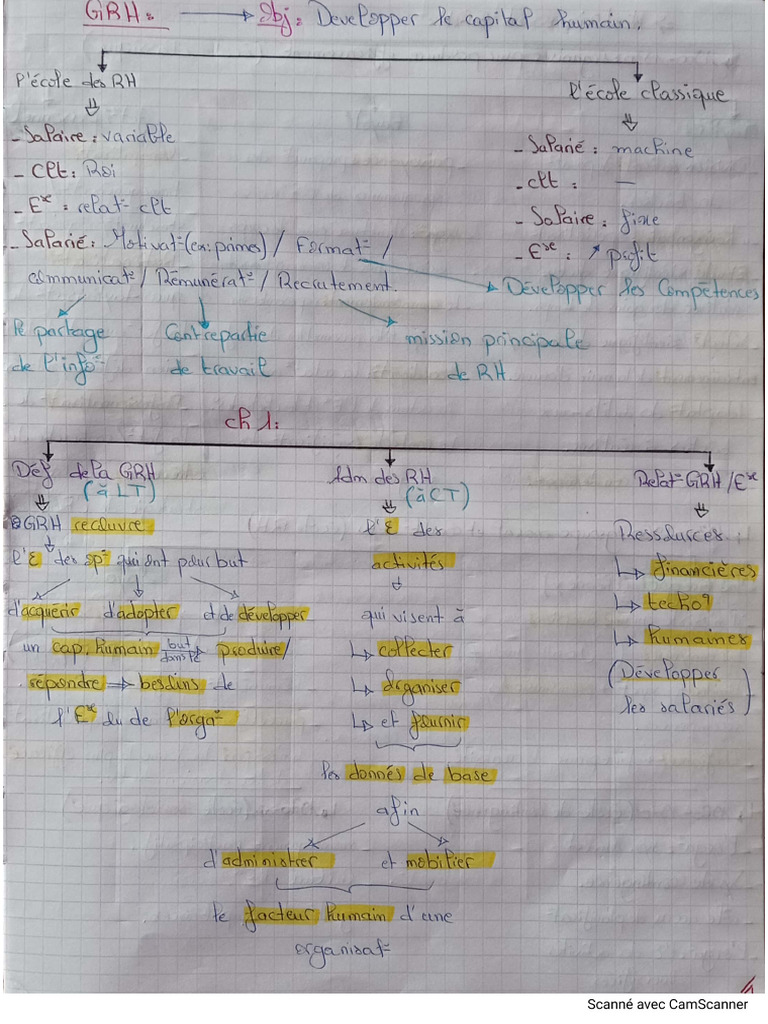 GRH: → Obj: Developper le capital humain.
l'école des RH
⇓
- Salaire : variable
- Clt : Roi
- Eˣᵉ : relat° clt
- Salarié : Motivat° (ex: primes) / Format° /
communicat° / Rémunérat° / Recrutement.
le partage
de l'info°
Contrepartie
de travail
mission principale
de RH
l'école classique
⇓
- Salarié : machine
- clt : —
- Salaire : fixe
- Eˣᵉ : ↗ profit
Développer les Compétences
ch 1:
Déf de la GRH
(à LT)
⇓
GRH recouvre
l'Σ des sp° qui ont pour but
d'acquérir d'adopter et de développer
un cap. humain but dans le produire/
répondre → besoins de
l'Eˣᵉ ou de l'orga°
Adm des RH
(à CT)
⇓
l'Σ des
activités
↓
qui visent à
↳ collecter
↳ organiser
↳ et fournir
les donnés de base
afin
d'administrer et mobilier
le facteur humain d'une
organisat°
Relat° GRH / Eˣᵉ
⇓
Ressources
↳ financières
↳ techo9
↳ humaines
(Développer
les salariés)
Scanné avec CamScanner